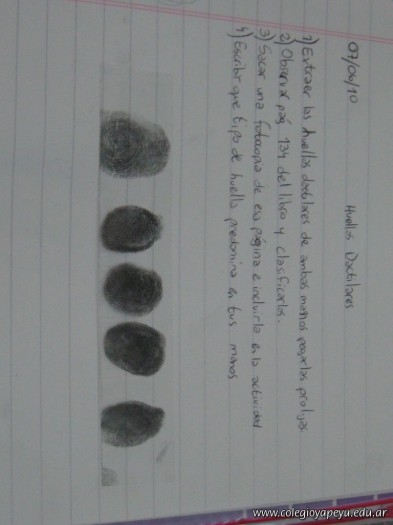 07/06/10
Huellas Dactilares
1) Extraer las huellas dactilares de ambas manos pegarlas prolijas
2) Observar pág. 134 del libro y clasificarlas.
3) Sacar una fotocopia de esa página e incluirla en la actividad
4) Escribir que tipo de huella predomina en tus manos
www.colegioyapeyu.edu.ar